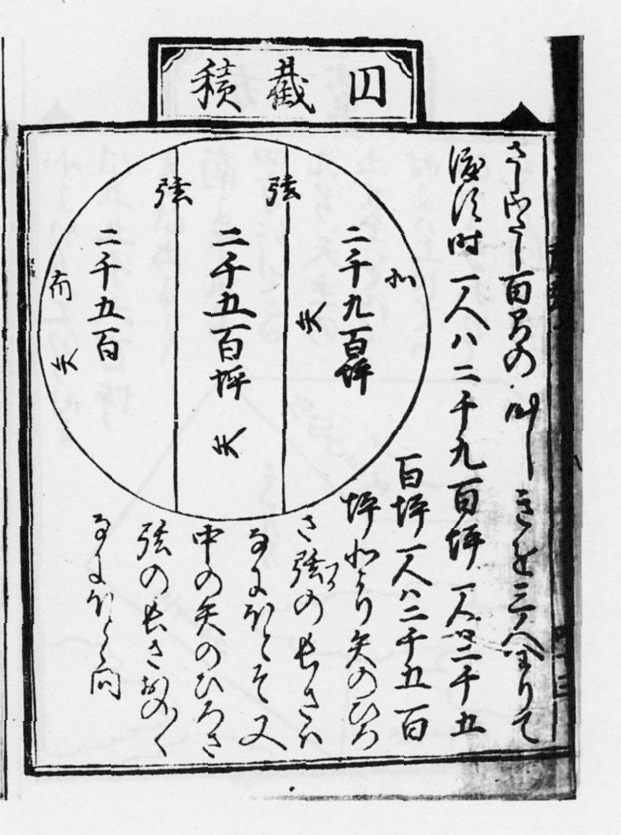 円截積
さしわたし百間の円しきを三人わりて
渡す時一人ハ二千九百坪一人ハ二千五
百坪一人ハ二千五百
坪北より矢のひろ
さ弦の長さハ
なにほとそ又
中の矢のひろさ
弦の長さおの〱
なにほとゝ問
北
二千九百坪
矢
弦
二千五百坪
矢
弦
二千五百
南
矢